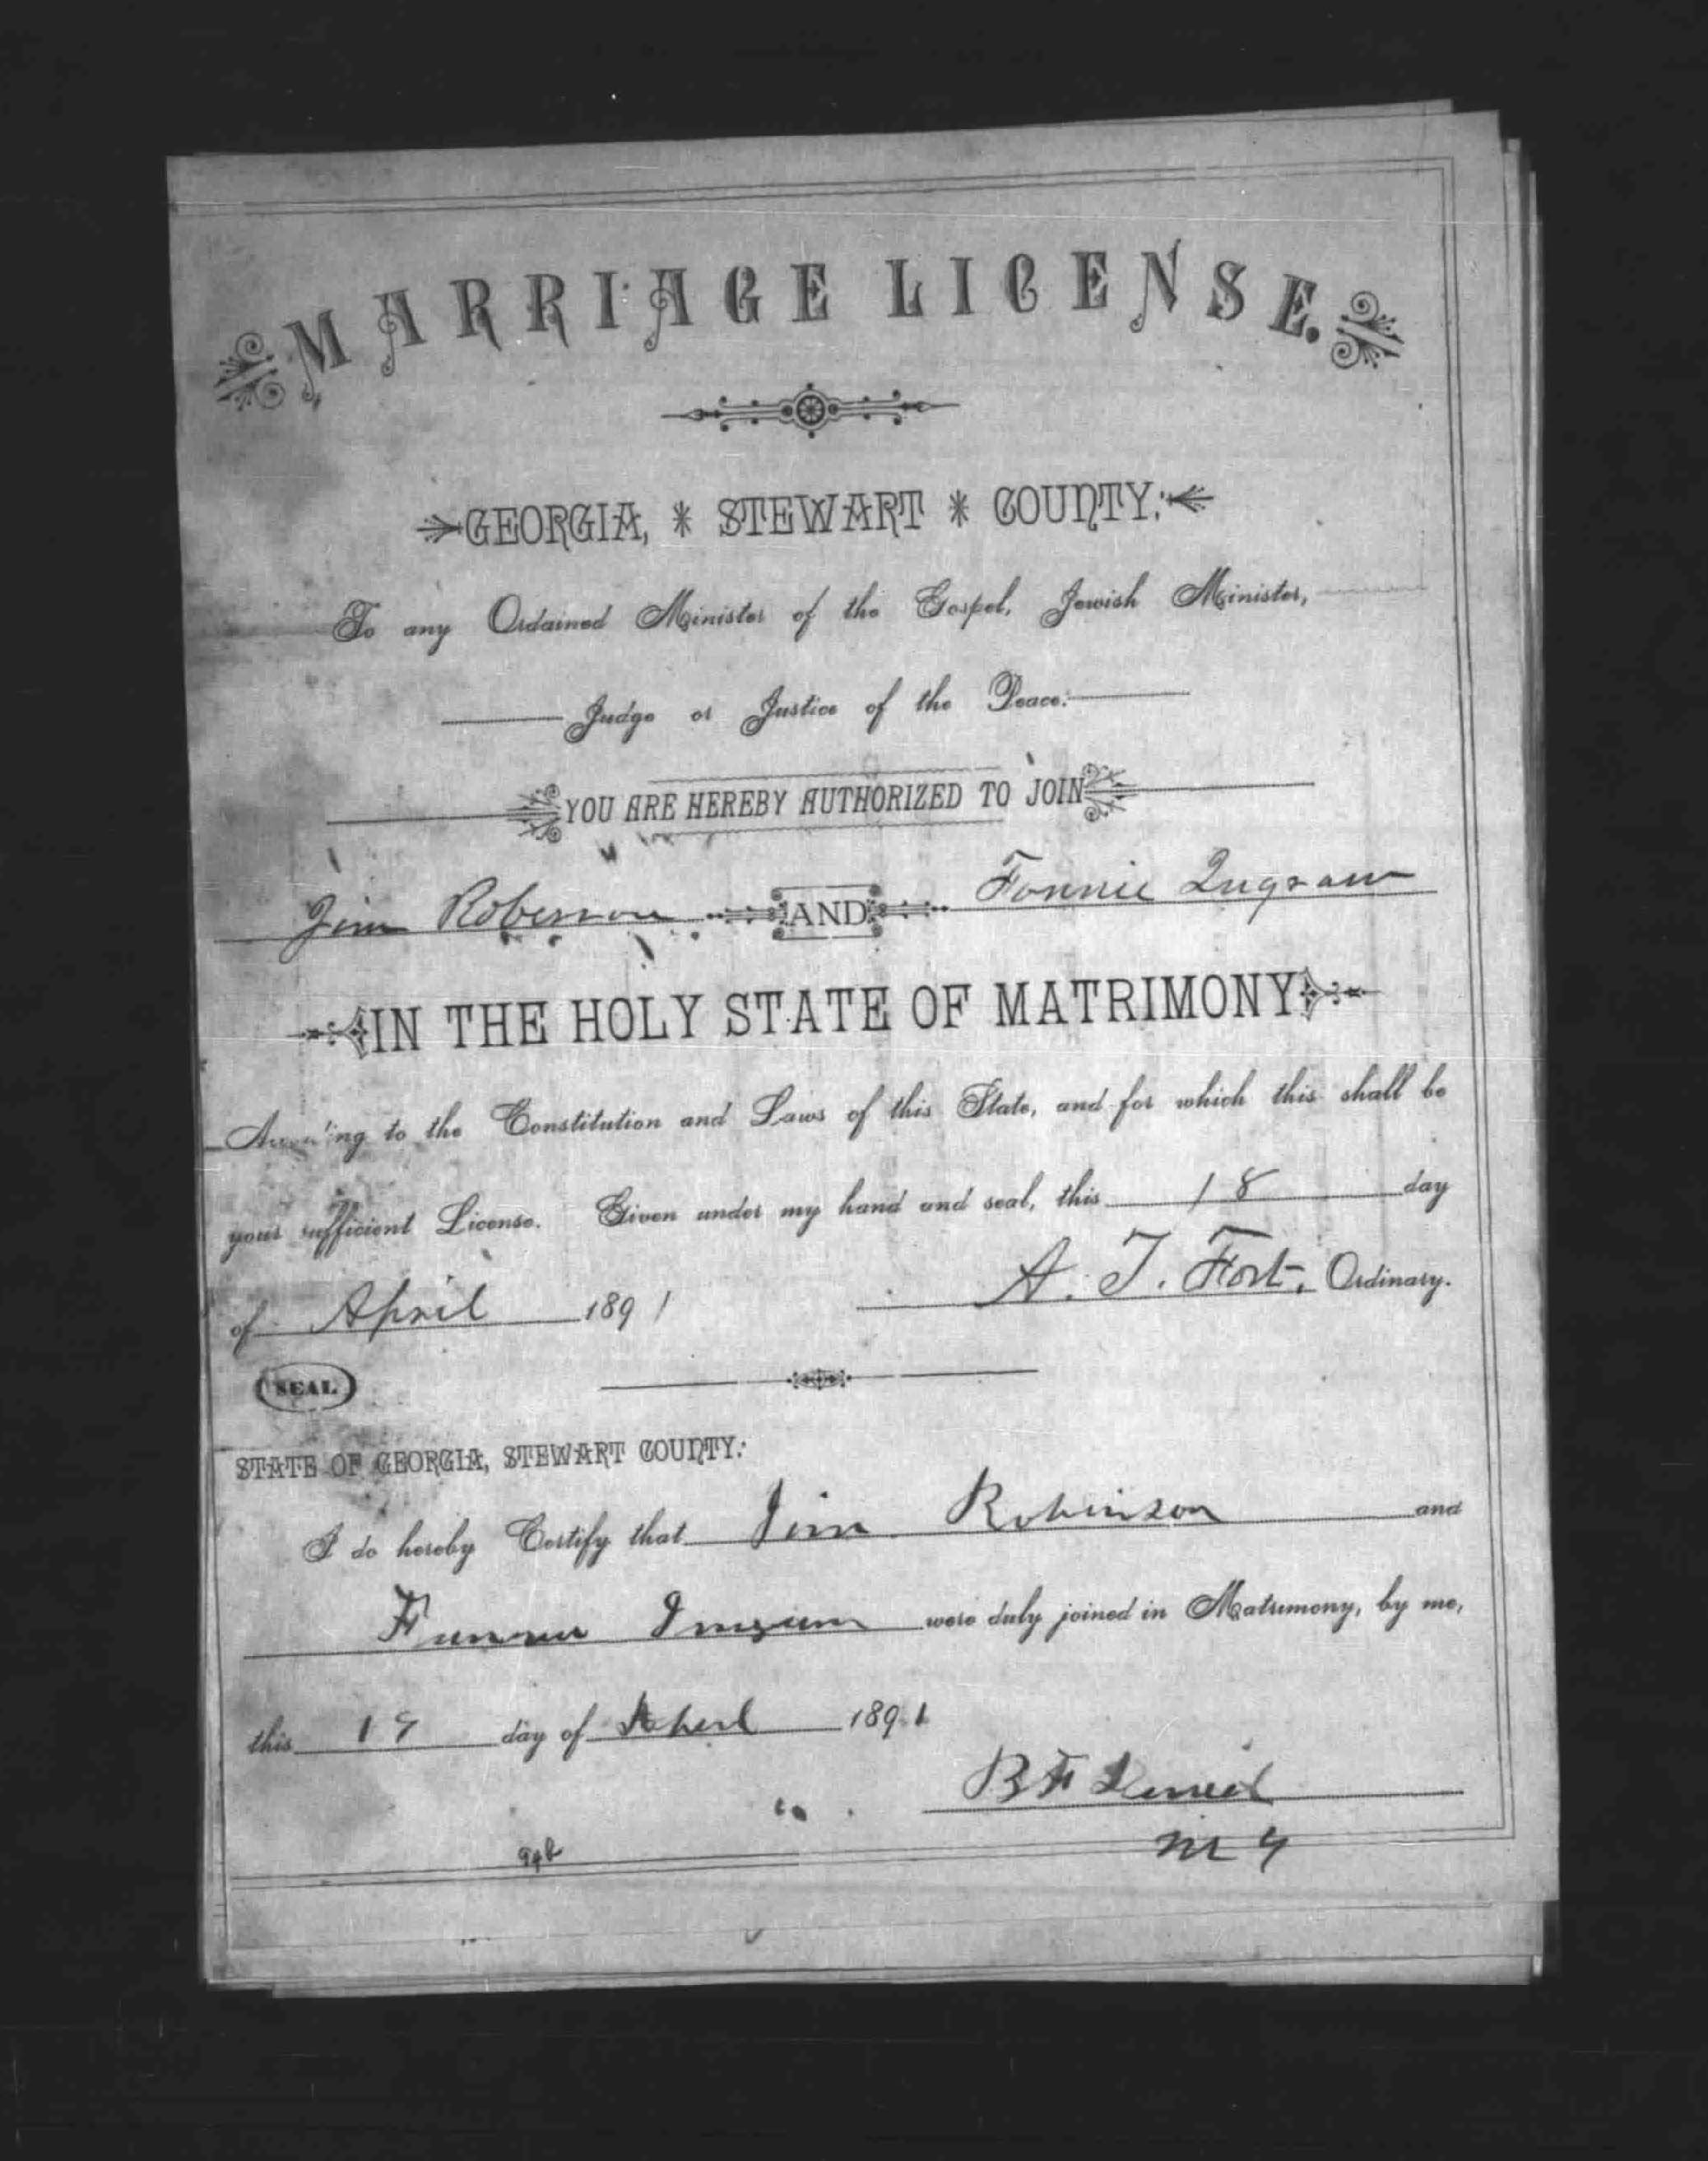 MARRIAGE LICENSE.
GEORGIA, * STEWART * COUNTY:
To any Ordained Minister of the Gospel, Jewish Minister,
Judge or Justice of the Peace:
YOU ARE HEREBY AUTHORIZED TO JOIN
Jim Roberson AND Fonnie Ingram
IN THE HOLY STATE OF MATRIMONY
According to the Constitution and Laws of this State, and for which this shall be
your sufficient License. Given under my hand and seal, this 18 day
of April 1891 A. T. Fort, Ordinary.
SEAL
STATE OF GEORGIA, STEWART COUNTY:
I do hereby Certify that Jim Robinson and
were duly joined in Matrimony, by me,
this 19 day of 1891
B F
M G